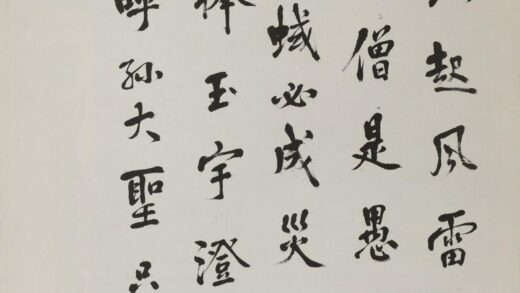 起风雷
僧是愚
蜮必成災
棒玉宇澄
呼孙大聖只